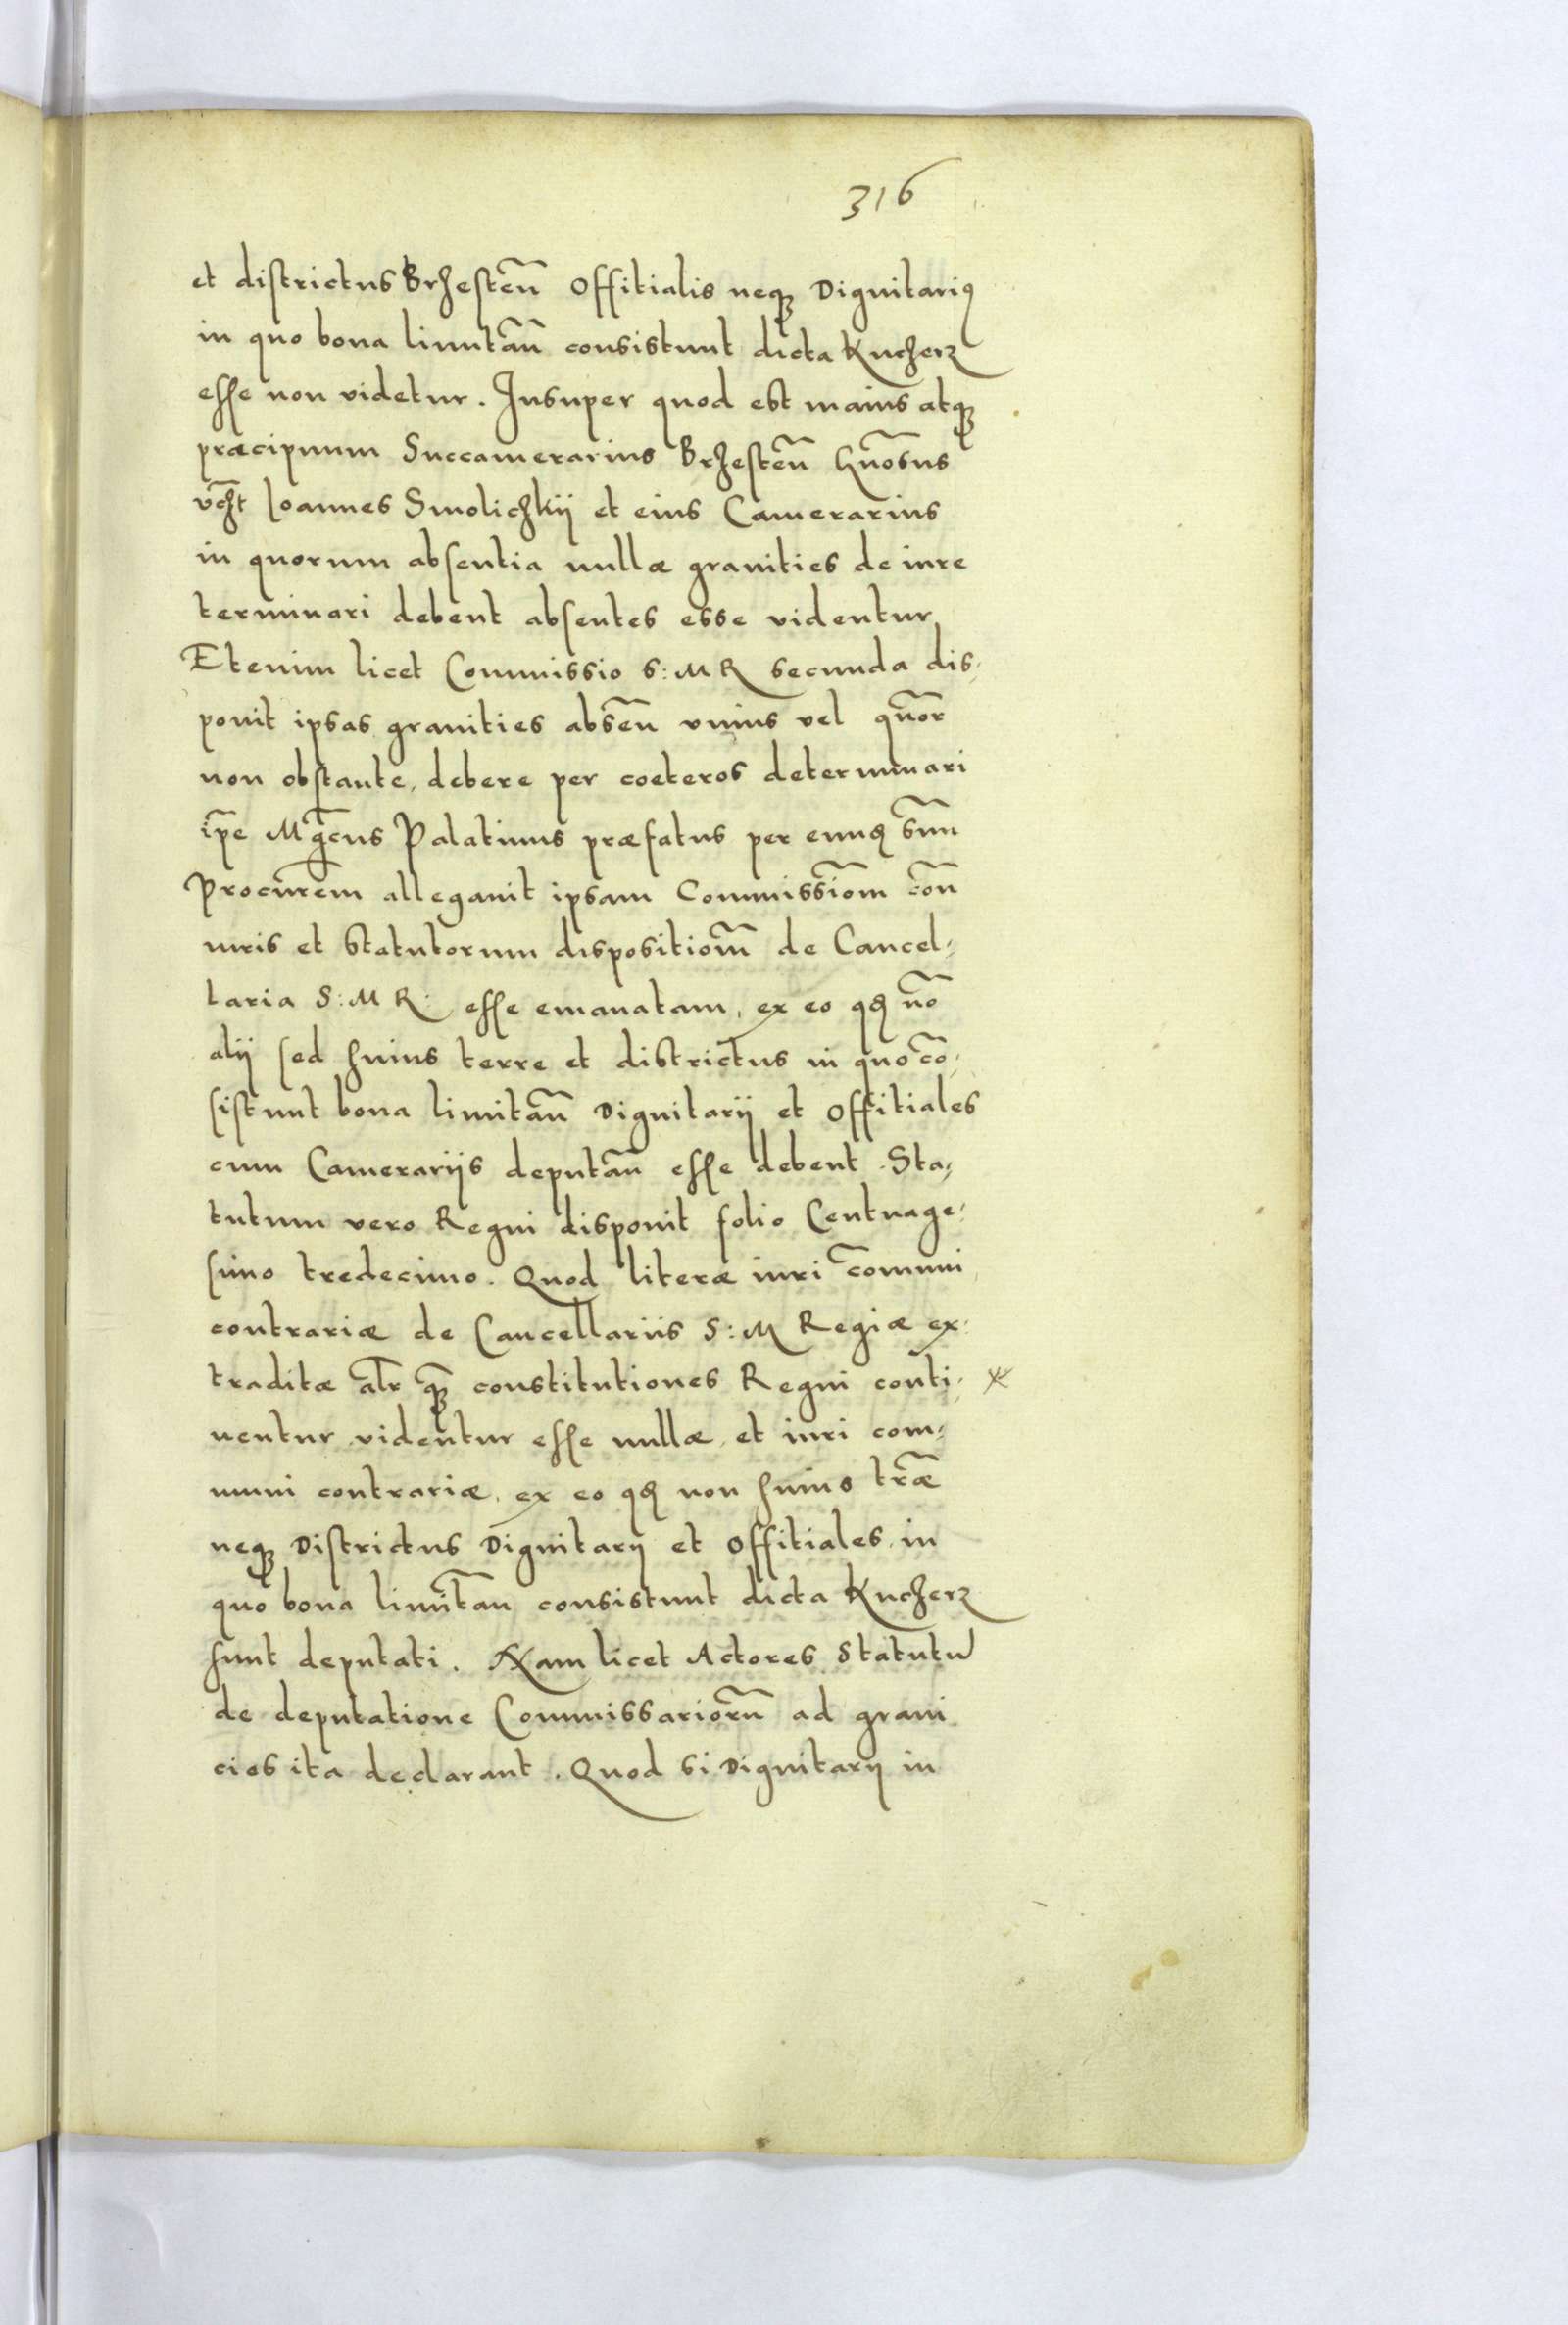 316
et districtus Brzesten̄ Offitialis neqꝫ Dignitariꝯ
in quo bona limitan̄ consistunt dicta Kucherz
esse non videtur. Insuper quod est maius atqꝫ
præcipuum Succamerarius Brzesten̄ Gn̄osus
vcꝫt Ioannes Smolichkij et eius Camerarius
in quorum absentia nullæ granities de iure
terminari debent absentes esse videntur
Etenim licet Commissio S: M R secunda dis-
ponit ipsas granities absen̄ vnius vel quor̄
non obstante, debere per coeteros determinari
ip̄e Mḡcus Palatinus præfatus per eundꝫ suū
Procur̄em allegauit ipsam Commissiom̄ con̄
iuris et Statutorum dispositiom̄ de Cancel-
laria S: M R: esse emanatam, ex eo qꝫ no̅
alij sed huius terre et districtus in quo co̅-
sistunt bona limitan̄ Dignitarij et Offitiales
cum Camerarijs deputan̄ esse debent. Sta-
tutum vero Regni disponit folio Centuage-
simo tredecimo. Quod literæ iuri com̄uni
contrariæ de Cancellariis S: M Regiæ ex-
traditæ alr̄ qꝫ constitutiones Regni conti- *
nentur videntur esse nullæ, et iuri com-
muni contrariæ, ex eo qꝫ non huius tr̄æ
neqꝫ Districtus Dignitarij et Offitiales, in
quo bona limitan̄ consistunt dicta Kucherz
sunt deputati. Nam licet Actores Statutū
de deputatione Commissariorū ad grani
cies ita declarant. Quod si Dignitarij in